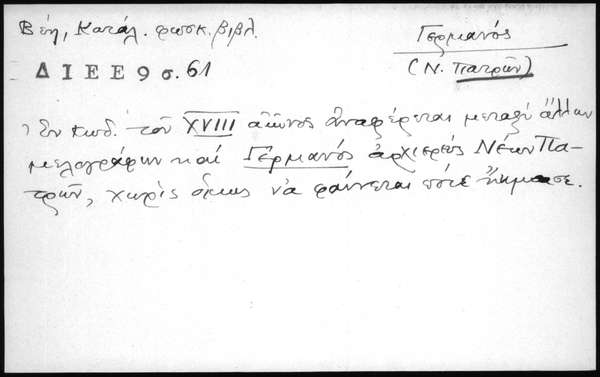 Βέη, Κατάλ. φωσκ. βιβλ.
Γερμανός
(Ν. Πατρῶν)
ΔΙΕΕ9 σ. 61
Ἐν κωδ. τοῦ XVIII αἰῶνος ἀναφέρεται μεταξὺ ἄλλων
μελογράφων καὶ Γερμανός ἀρχιερεὺς Νέων Πα-
τρῶν, χωρὶς ὅμως νὰ φαίνεται πότε ἤκμασε.